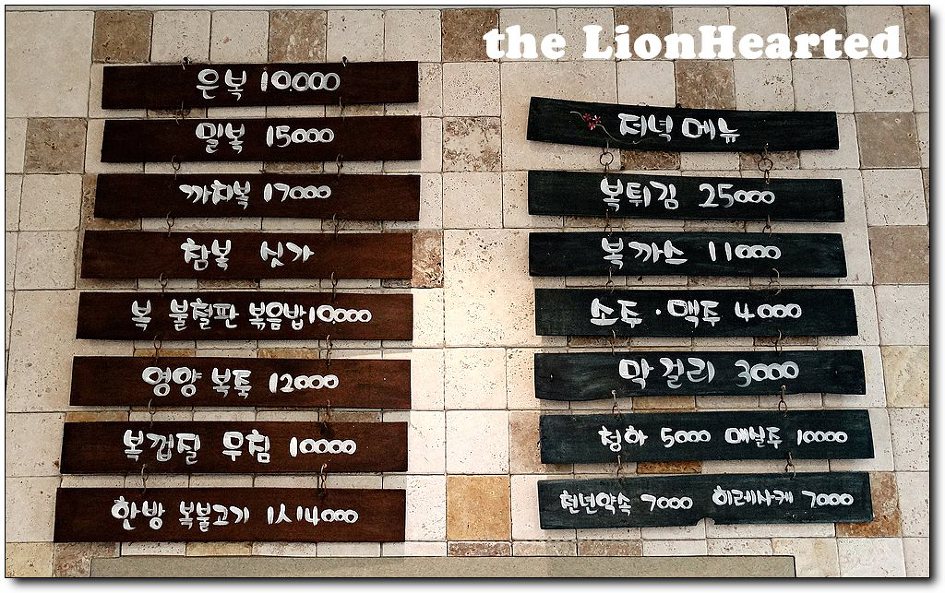 the LionHearted
은복 10,000
밀복 15000
까치복 17000
참복 싯가
복 불철판 볶음밥 10,000
영양 복툭 12000
복껍질 무침 10000
한방 복불고기 1人14000
저녁메뉴
복튀김 25000
복까스 11000
소주·맥주 4000
막걸리 3000
청하 5000 매실주 10000
천년약속 7000 히레사케 7000